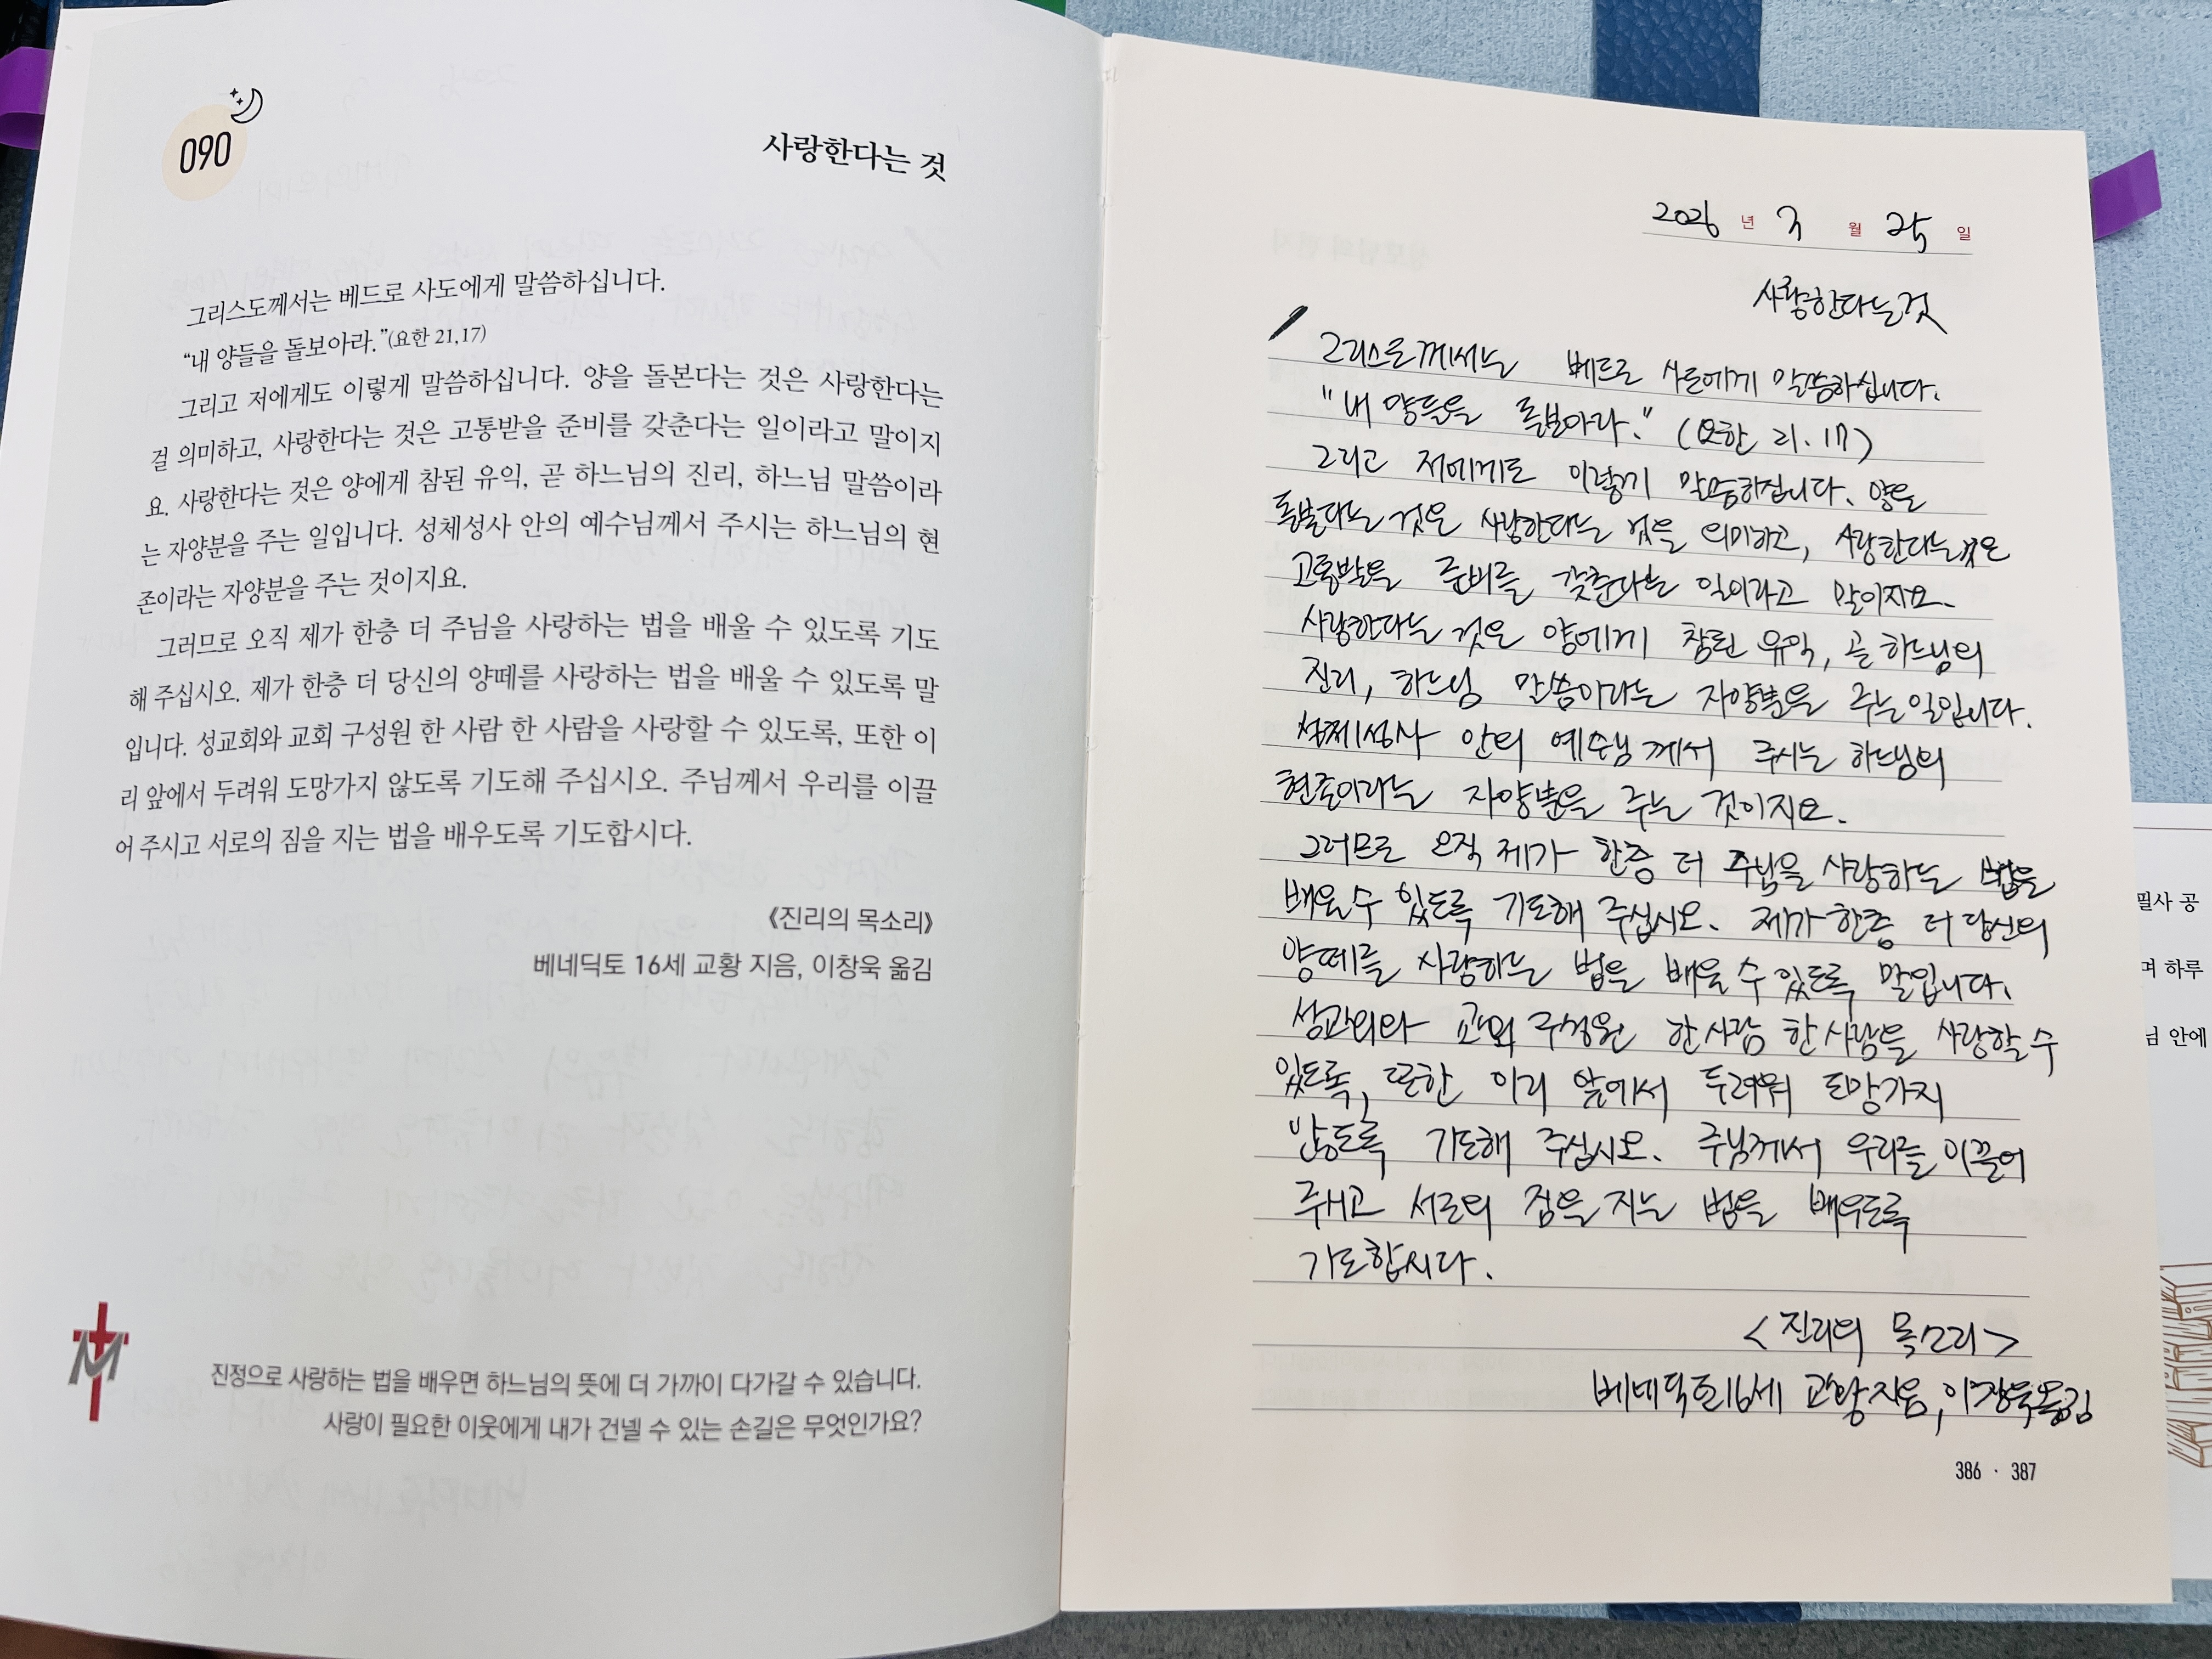 090
사랑한다는 것
그리스도께서는 베드로 사도에게 말씀하십니다.
“내 양들을 돌보아라.”(요한 21,17)
그리고 저에게도 이렇게 말씀하십니다. 양을 돌본다는 것은 사랑한다는
걸 의미하고, 사랑한다는 것은 고통받을 준비를 갖춘다는 일이라고 말이지
요. 사랑한다는 것은 양에게 참된 유익, 곧 하느님의 진리, 하느님 말씀이라
는 자양분을 주는 일입니다. 성체성사 안의 예수님께서 주시는 하느님의 현
존이라는 자양분을 주는 것이지요.
그러므로 오직 제가 한층 더 주님을 사랑하는 법을 배울 수 있도록 기도
해 주십시오. 제가 한층 더 당신의 양떼를 사랑하는 법을 배울 수 있도록 말
입니다. 성교회와 교회 구성원 한 사람 한 사람을 사랑할 수 있도록, 또한 이
리 앞에서 두려워 도망가지 않도록 기도해 주십시오. 주님께서 우리를 이끌
어 주시고 서로의 짐을 지는 법을 배우도록 기도합시다.
《진리의 목소리》
베네딕토 16세 교황 지음, 이창욱 옮김
진정으로 사랑하는 법을 배우면 하느님의 뜻에 더 가까이 다가갈 수 있습니다.
사랑이 필요한 이웃에게 내가 건넬 수 있는 손길은 무엇인가요?
2026 년 3 월 25 일
사랑한다는 것
그리스도께서는 베드로 사도에게 말씀하십니다.
"내 양들을 돌보아라." (요한 21.17)
그리고 저에게도 이렇게 말씀하십니다. 양을
돌본다는 것은 사랑한다는 것을 의미하고, 사랑한다는 것은
고통받을 준비를 갖춘다는 일이라고 말이지요.
사랑한다는 것은 양에게 참된 유익, 곧 하느님의
진리, 하느님 말씀이라는 자양분을 주는 일입니다.
성체성사 안의 예수님께서 주시는 하느님의
현존이라는 자양분을 주는 것이지요.
그러므로 오직 제가 한층 더 주님을 사랑하는 법을
배울 수 있도록 기도해 주십시오. 제가 한층 더 당신의
양떼를 사랑하는 법을 배울 수 있도록 말입니다.
성교회와 교회 구성원 한 사람 한 사람을 사랑할 수
있도록, 또한 이리 앞에서 두려워 도망가지
않도록 기도해 주십시오. 주님께서 우리를 이끌어
주시고 서로의 짐을 지는 법을 배우도록
기도합시다.
<진리의 목소리>
베네딕토 16세 교황 지음, 이창욱 옮김
386 · 387
필사 공
며 하루
님 안에